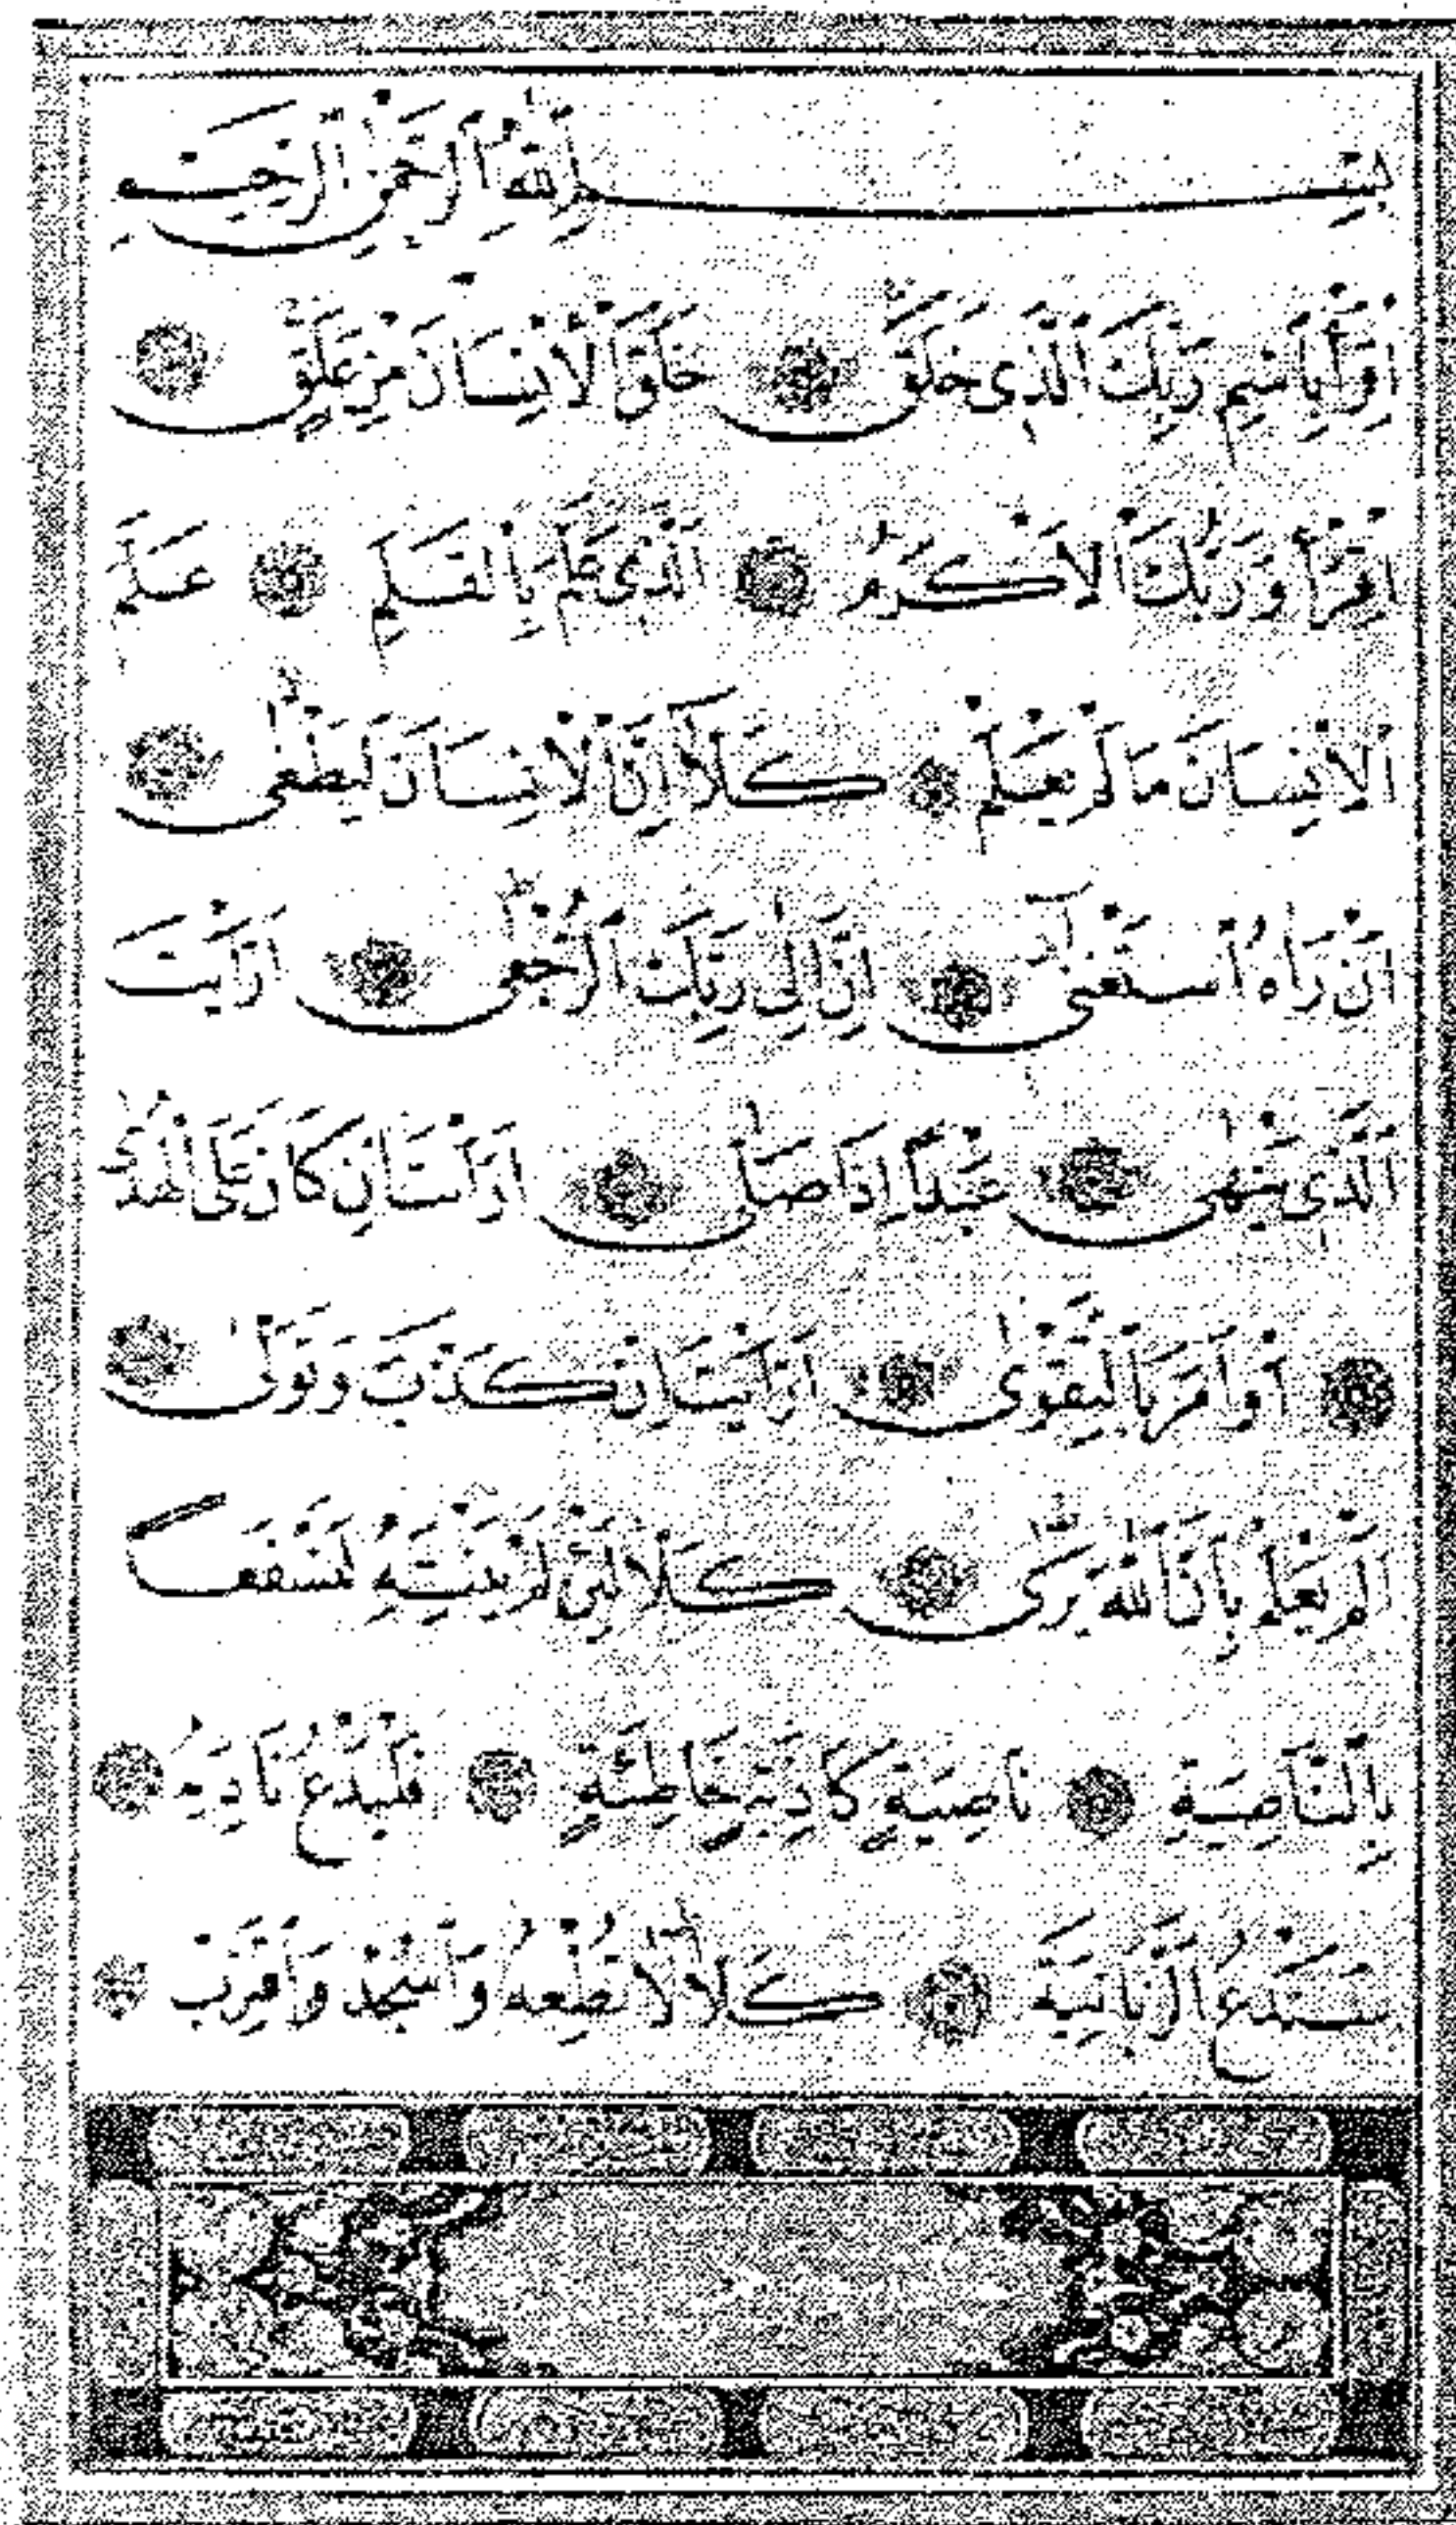 بِسْمِ اللّٰهِ الرَّحْمٰنِ الرَّحِيمِ
اِقْرَأْ بِاسْمِ رَبِّكَ الَّذِي خَلَقَ خَلَقَ الْاِنْسَانَ مِنْ عَلَقٍ
اِقْرَأْ وَرَبُّكَ الْاَكْرَمُ الَّذِي عَلَّمَ بِالْقَلَمِ عَلَّمَ
الْاِنْسَانَ مَا لَمْ يَعْلَمْ كَلَّا اِنَّ الْاِنْسَانَ لَيَطْغٰى
اَنْ رَاٰهُ اسْتَغْنٰى اِنَّ اِلٰى رَبِّكَ الرُّجْعٰى اَرَاَيْتَ
الَّذِي يَنْهٰى عَبْدًا اِذَا صَلّٰى اَرَاَيْتَ اِنْ كَانَ عَلَى الْهُدٰى
اَوْ اَمَرَ بِالتَّقْوٰى اَرَاَيْتَ اِنْ كَذَّبَ وَتَوَلّٰى
اَلَمْ يَعْلَمْ بِاَنَّ اللّٰهَ يَرٰى كَلَّا لَئِنْ لَمْ يَنْتَهِ لَنَسْفَعًا
بِالنَّاصِيَةِ نَاصِيَةٍ كَاذِبَةٍ خَاطِئَةٍ فَلْيَدْعُ نَادِيَهُ
سَنَدْعُ الزَّبَانِيَةَ كَلَّا لَا تُطِعْهُ وَاسْجُدْ وَاقْتَرِبْ